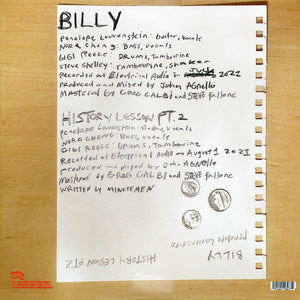 BILLY
Penelope Lowenstein: Guitar, vocals
Nora Cheng: Bass, vocals
GiGi Reece: Drums, Tambourine
Steve Shelley: Tambourine, Shaker
Recorded at Electrical Audio in July 2021
Produced and Mixed by John Agnello
Mastered by Greg CALBI and Steve Fallone
HISTORY LESSON PT. 2
Penelope Lowenstein: Guitar, vocals
NORA CHENG: Bass, vocals
GIGI REECE: DRUMS, Tambourine
Recorded at Electrical Audio on August 1 2021
produced and mixed by John Agnello
Mastered by GREG CALBI and Steve Fallone
WRITTEN BY MINUTEMEN
Penelope Lowenstein
BILLY
HISTORY LESSON PT.2